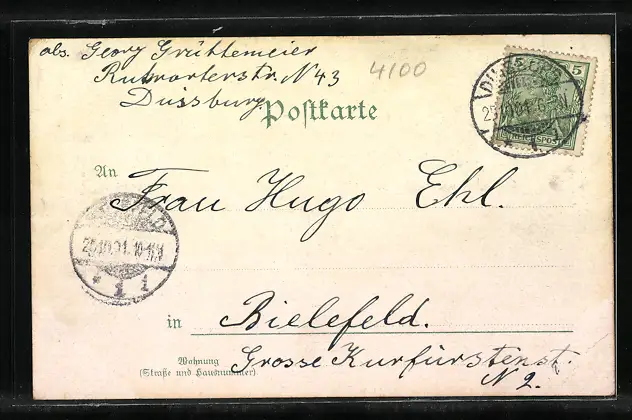 abs. Georg Grüttemeier
Ruhrorterstr. N 43
Duissburg.
4100
Postkarte
5
REICHSPOST
An
Frau Hugo Ehl.
in
Bielefeld.
Wohnung
(Straße und Hausnummer)
Grosse Kurfürstenst.
N 2.